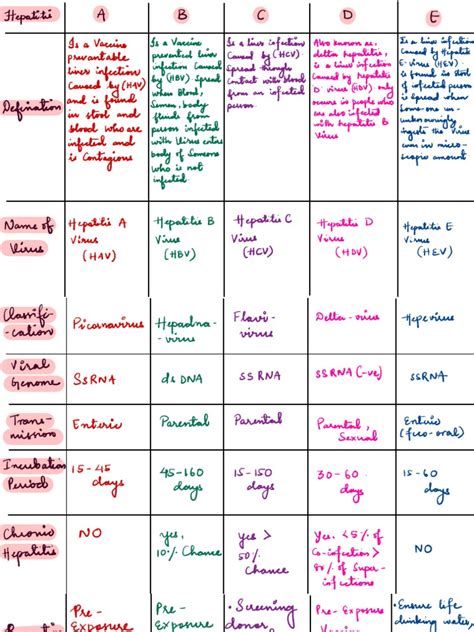 Hepatitis A B C D E
Defination
Is a Vaccine
preventable
liver infection
Caused by (HAV)
and is found
in stool and
blood who are
infected and
is Contagious
Is a Vaccine
preventable liver
infection Caused
by (HBV) Spread
when Blood,
Semen, body
fluids from
person infected
with Virus enters
body of Someone
who is not
infected
Is a liver infection
Caused by (HCV)
Spread through
Contact with blood
from an infected
person
Also known as
delta hepatitis,
is a liver infection
Caused by hepatitis
D virus (HDV) only
occurs in people who
are also infected
with hepatitis B
Virus
Is a liver infection
Caused by Hepatitis
E-virus (HEV)
is found in stool
of infected person
is Spread when
some-one
unknowingly
ingests the Virus
in micro-
scopic amount
Name of
Virus
Hepatitis A
Virus
(HAV)
Hepatitis B
Virus
(HBV)
Hepatitis C
Virus
(HCV)
Hepatitis D
Virus
(HDV)
Hepatitis E
Virus
(HEV)
Classifi
-cation
Picornavirus
Hepadna-
virus
Flavi-
virus
Delta-virus
Hepevirus
Viral
Genome
SsRNA
ds DNA
SS RNA
SS RNA (-ve)
SSRNA
Trans-
mission
Enteric
Parental
Parental
Parental,
Sexual
Enteric
(feco-oral)
Incubation
Period
15-45
days
45-160
days
15-150
days
30-60
days
15-60
days
Chronic
Hepatitis
NO
Yes,
10% Chance
Yes >
50%
Chance
Yes. <5% of
Co-infection >
80% of Super-
infections
NO
Pre-
Exposure
Pre-
Exposure
• Screening
donor,
Pre-
Exposure
• Ensure life
drinking water,